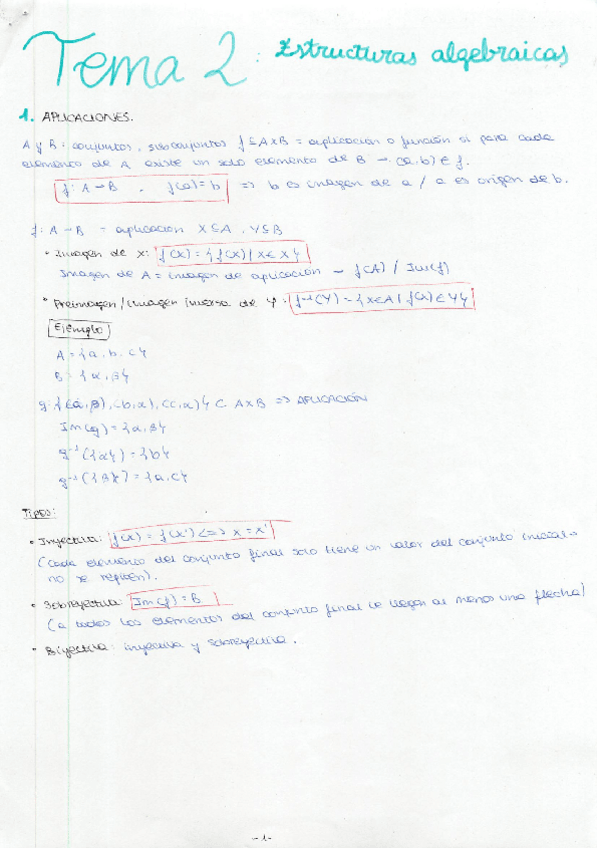 Tema 2: Estructuras algebraicas
1. APLICACIONES.
A y B: conjuntos, subconjuntos f ⊆ A×B = aplicación o función si para cada
elemento de A existe un solo elemento de B → (a,b) ∈ f.
f: A → B , f(a) = b => b es imagen de a / a es origen de b.
f: A → B = aplicación X ⊆ A , Y ⊆ B
• Imagen de x: f(X) = { f(x) / x ∈ X }
Imagen de A = imagen de aplicación - f(A) / Im(f)
• Preimagen / imagen inversa de Y: f⁻¹(Y) = { x ∈ A / f(x) ∈ Y }
Ejemplo
A = {a, b, c}
B = {α, β}
g: {(a,β), (b,α), (c,α)} ⊂ A×B => APLICACIÓN
Im(g) = {α, β}
g⁻¹({α}) = {b}
g⁻¹({β}) = {a, c}
Tipos:
• Inyectiva: f(x) = f(x') <=> x = x'
(Cada elemento del conjunto final solo tiene un valor del conjunto inicial →
no se repiten).
• Sobreyectiva: Im(f) = B
(a todos los elementos del conjunto final le llegan al menos una flecha)
• Biyectiva: inyectiva y sobreyectiva.
-1-